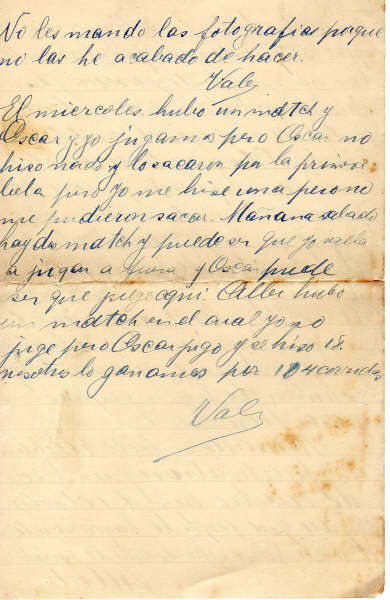 No les mando las fotografias porque
no las he acabado de hacer.
Valy
El miercoles hubo un match y
Oscar y yo jugamos pero Oscar no
hiso nada y lo sacaron por la primer
bola pero yo me hise una pero no
me pudieron sacar. Mañana sabado
hay dos match y puede ser que yo valla
a jugar a fuera y Oscar puede
ser que juege aqui. Alli hubo
un match en el cual yo no
juge pero Oscar jugo y se hiso 18
nosotros lo ganamos por 104 corridas
Valy